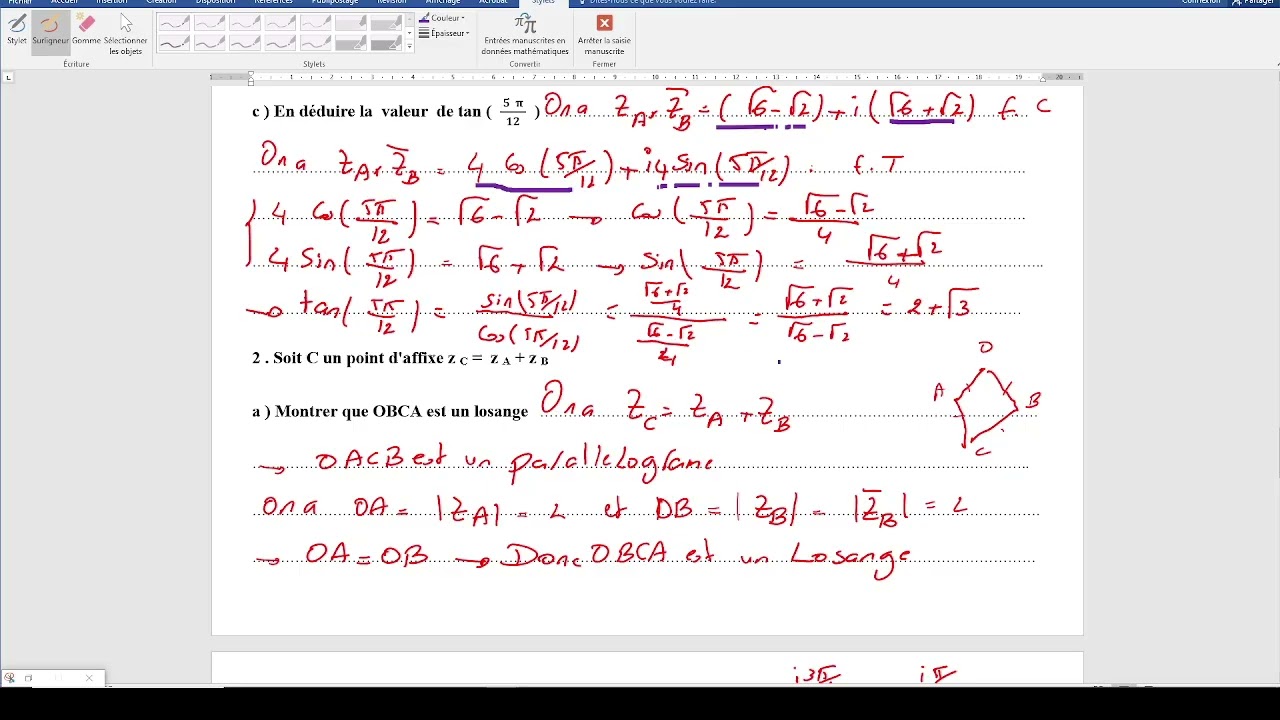 Fichier Accueil Insertion Création Disposition Références Publipostage Révision Affichage Acrobat Stylets Dites-nous ce que vous voulez faire. Connexion Partager
Stylet Surligneur Gomme Sélectionner les objets
Couleur
Épaisseur
Entrées manuscrites en données mathématiques
Arrêter la saisie manuscrite
Écriture Stylets Convertir Fermer
c ) En déduire la valeur de tan ( 5 π / 12 ) On a Z_A . Z̅_B = (√6 - √2) + i (√6 + √2) f. C
On a Z_A . Z̅_B = 4 Cos (5π/12) + i 4 Sin (5π/12) . f. T
{ 4 Cos (5π/12) = √6 - √2 → Cos (5π/12) = (√6 - √2)/4
4 Sin (5π/12) = √6 + √2 → Sin (5π/12) = (√6 + √2)/4
→ tan (5π/12) = sin(5π/12) / Cos(5π/12) = ((√6 + √2)/4) / ((√6 - √2)/4) = (√6 + √2)/(√6 - √2) = 2 + √3
2 . Soit C un point d'affixe z C = z A + z B
O
A
B
C
a ) Montrer que OBCA est un losange On a Z_C = Z_A + Z_B
→ OACB est un parallelograme
On a OA = |Z_A| = 2 et OB = |Z_B| = |Z̅_B| = 2
→ OA = OB → Donc OBCA est un Losange
i 3π i π